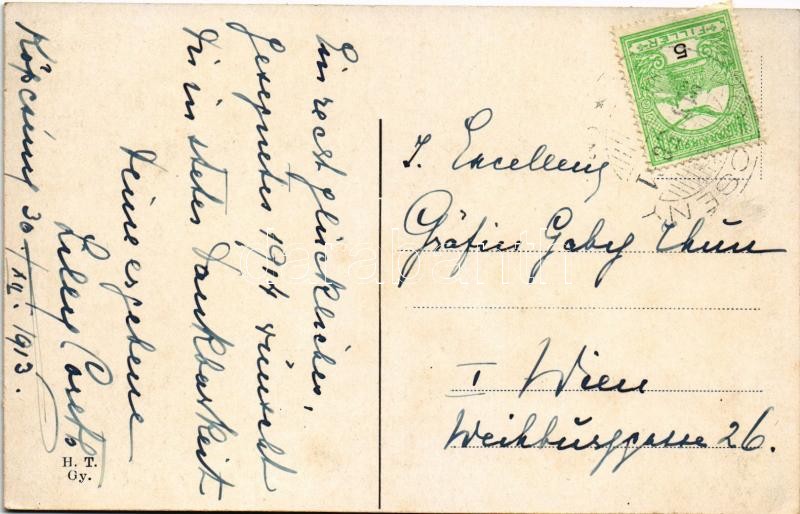 Ein recht glückliches,
gesegnetes 1914 wünscht
Dir in steter Dankbarkeit
Deine ergebene
Lilly
Köpcsény 30/XII. 1913.
H. T.
Gy.
FILLÉR
5
I. Excellenz
Gräfin Gaby Thun
I Wien
Weihburggasse 26.